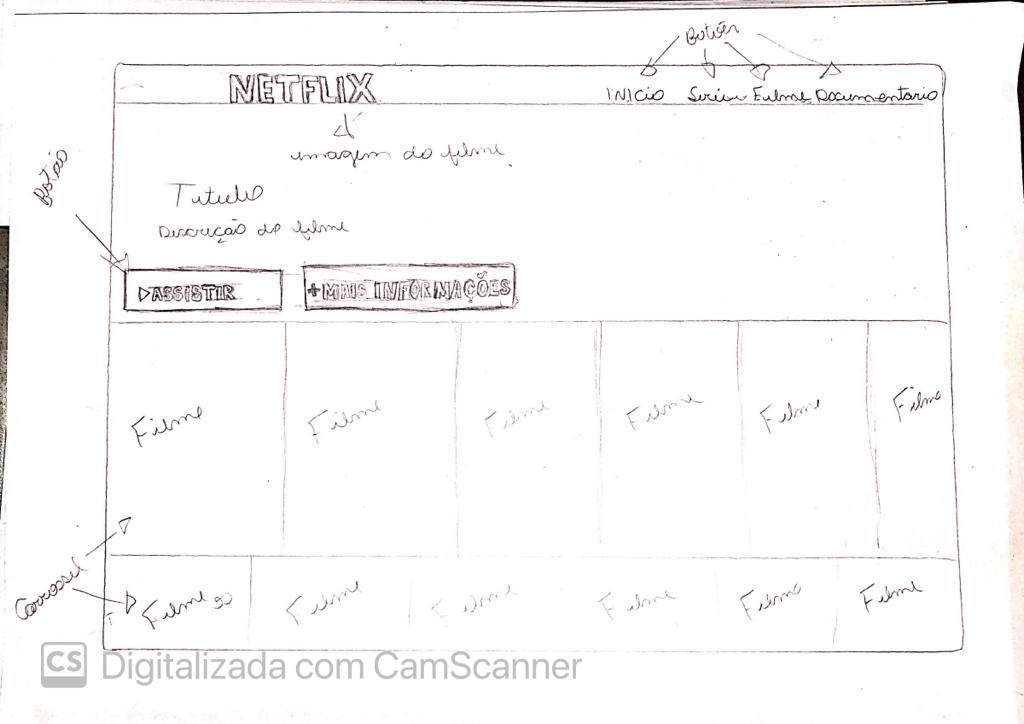 Botões
NETFLIX
INICIO Series Filme Documentario
imagem do filme
Botão
Titulo
Descrição do filme
▷ASSISTIR +MAIS INFORMAÇÕES
Filme Filme Filme Filme Filme Filme
Carrossel
Filme Filme Filme Filme Filme Filme
CS Digitalizada com CamScanner